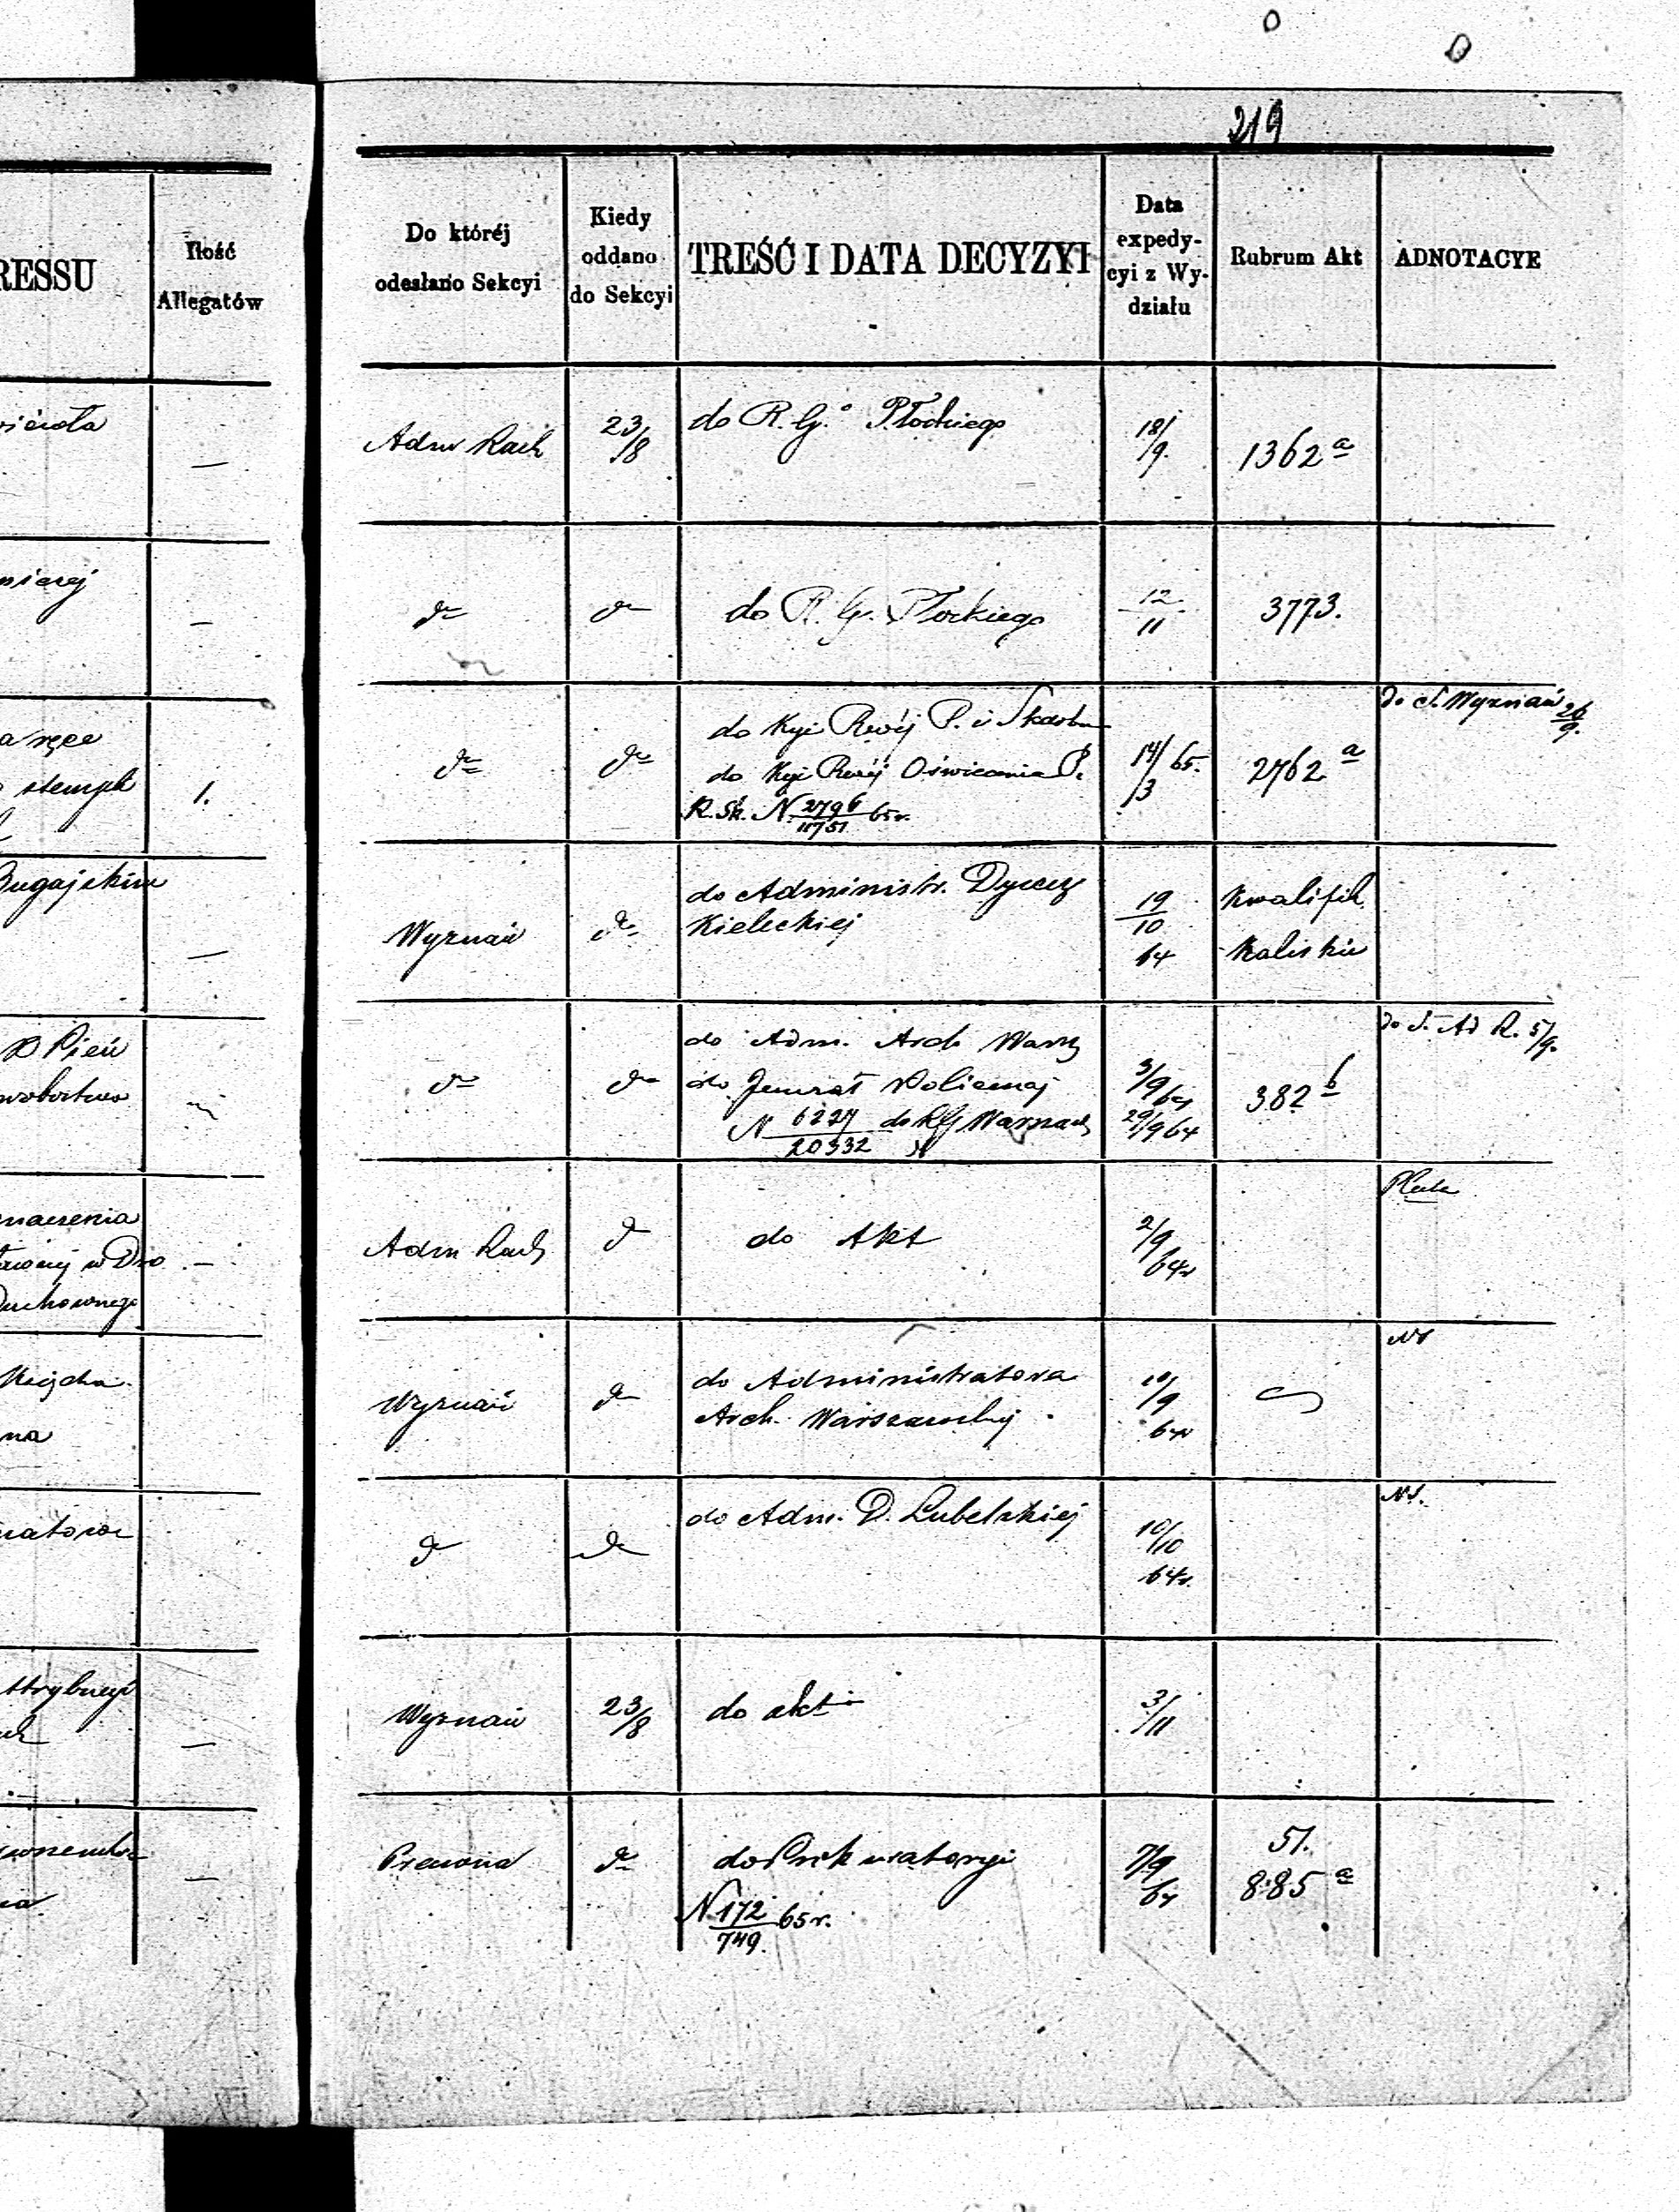 219
RESSU
Ilość
Allegatów
Do któréj
odesłano Sekcyi
Kiedy
oddano
do Sekcyi
TREŚĆ I DATA DECYZYI
Data
expedy-
cyi z Wy-
działu
Rubrum Akt
ADNOTACYE
—
Adm Rach
23/8
do R. G. Płockiego
18/9.
1362 a
—
do
do
do R. G. Płockiego
12/11
3773.
a ręce
stempl
1.
do
do
do Kyi Rwéj P. i Skarbu
do Kyi Rwéj Oświecenia P.
R. Sk. N 2796/11751 65 r.
14/3 65.
2762 a
do S. Wyznań 26/9.
Bugajskim
—
Wyznań
do
do Administr. Dyecezy
Kieleckiej
19/10
64
Kwalifik.
Kaliskie
do
do
do Adm. Arch Warsz
do Jenerał Policmaj
N 6227/20332 do RG Warszaw
3/9 64
29/9 64
382 b
do S. Ad R. 5/9.
naczenia
w Dro
Duchownego
—
Adm Rach
do
do Akt
2/9
64 r
na
Wyznań
do
do Administratora
Arch. Warszawskiej
10/9
64 r
NS
do
do
do Adm. D. Lubelskiej
10/10
64 r.
NS.
—
Wyznań
23/8
do akt
3/11
—
Prawna
do
do Prokuratoryi
N 172/749. 65 r.
7/9
64
51.
885 a